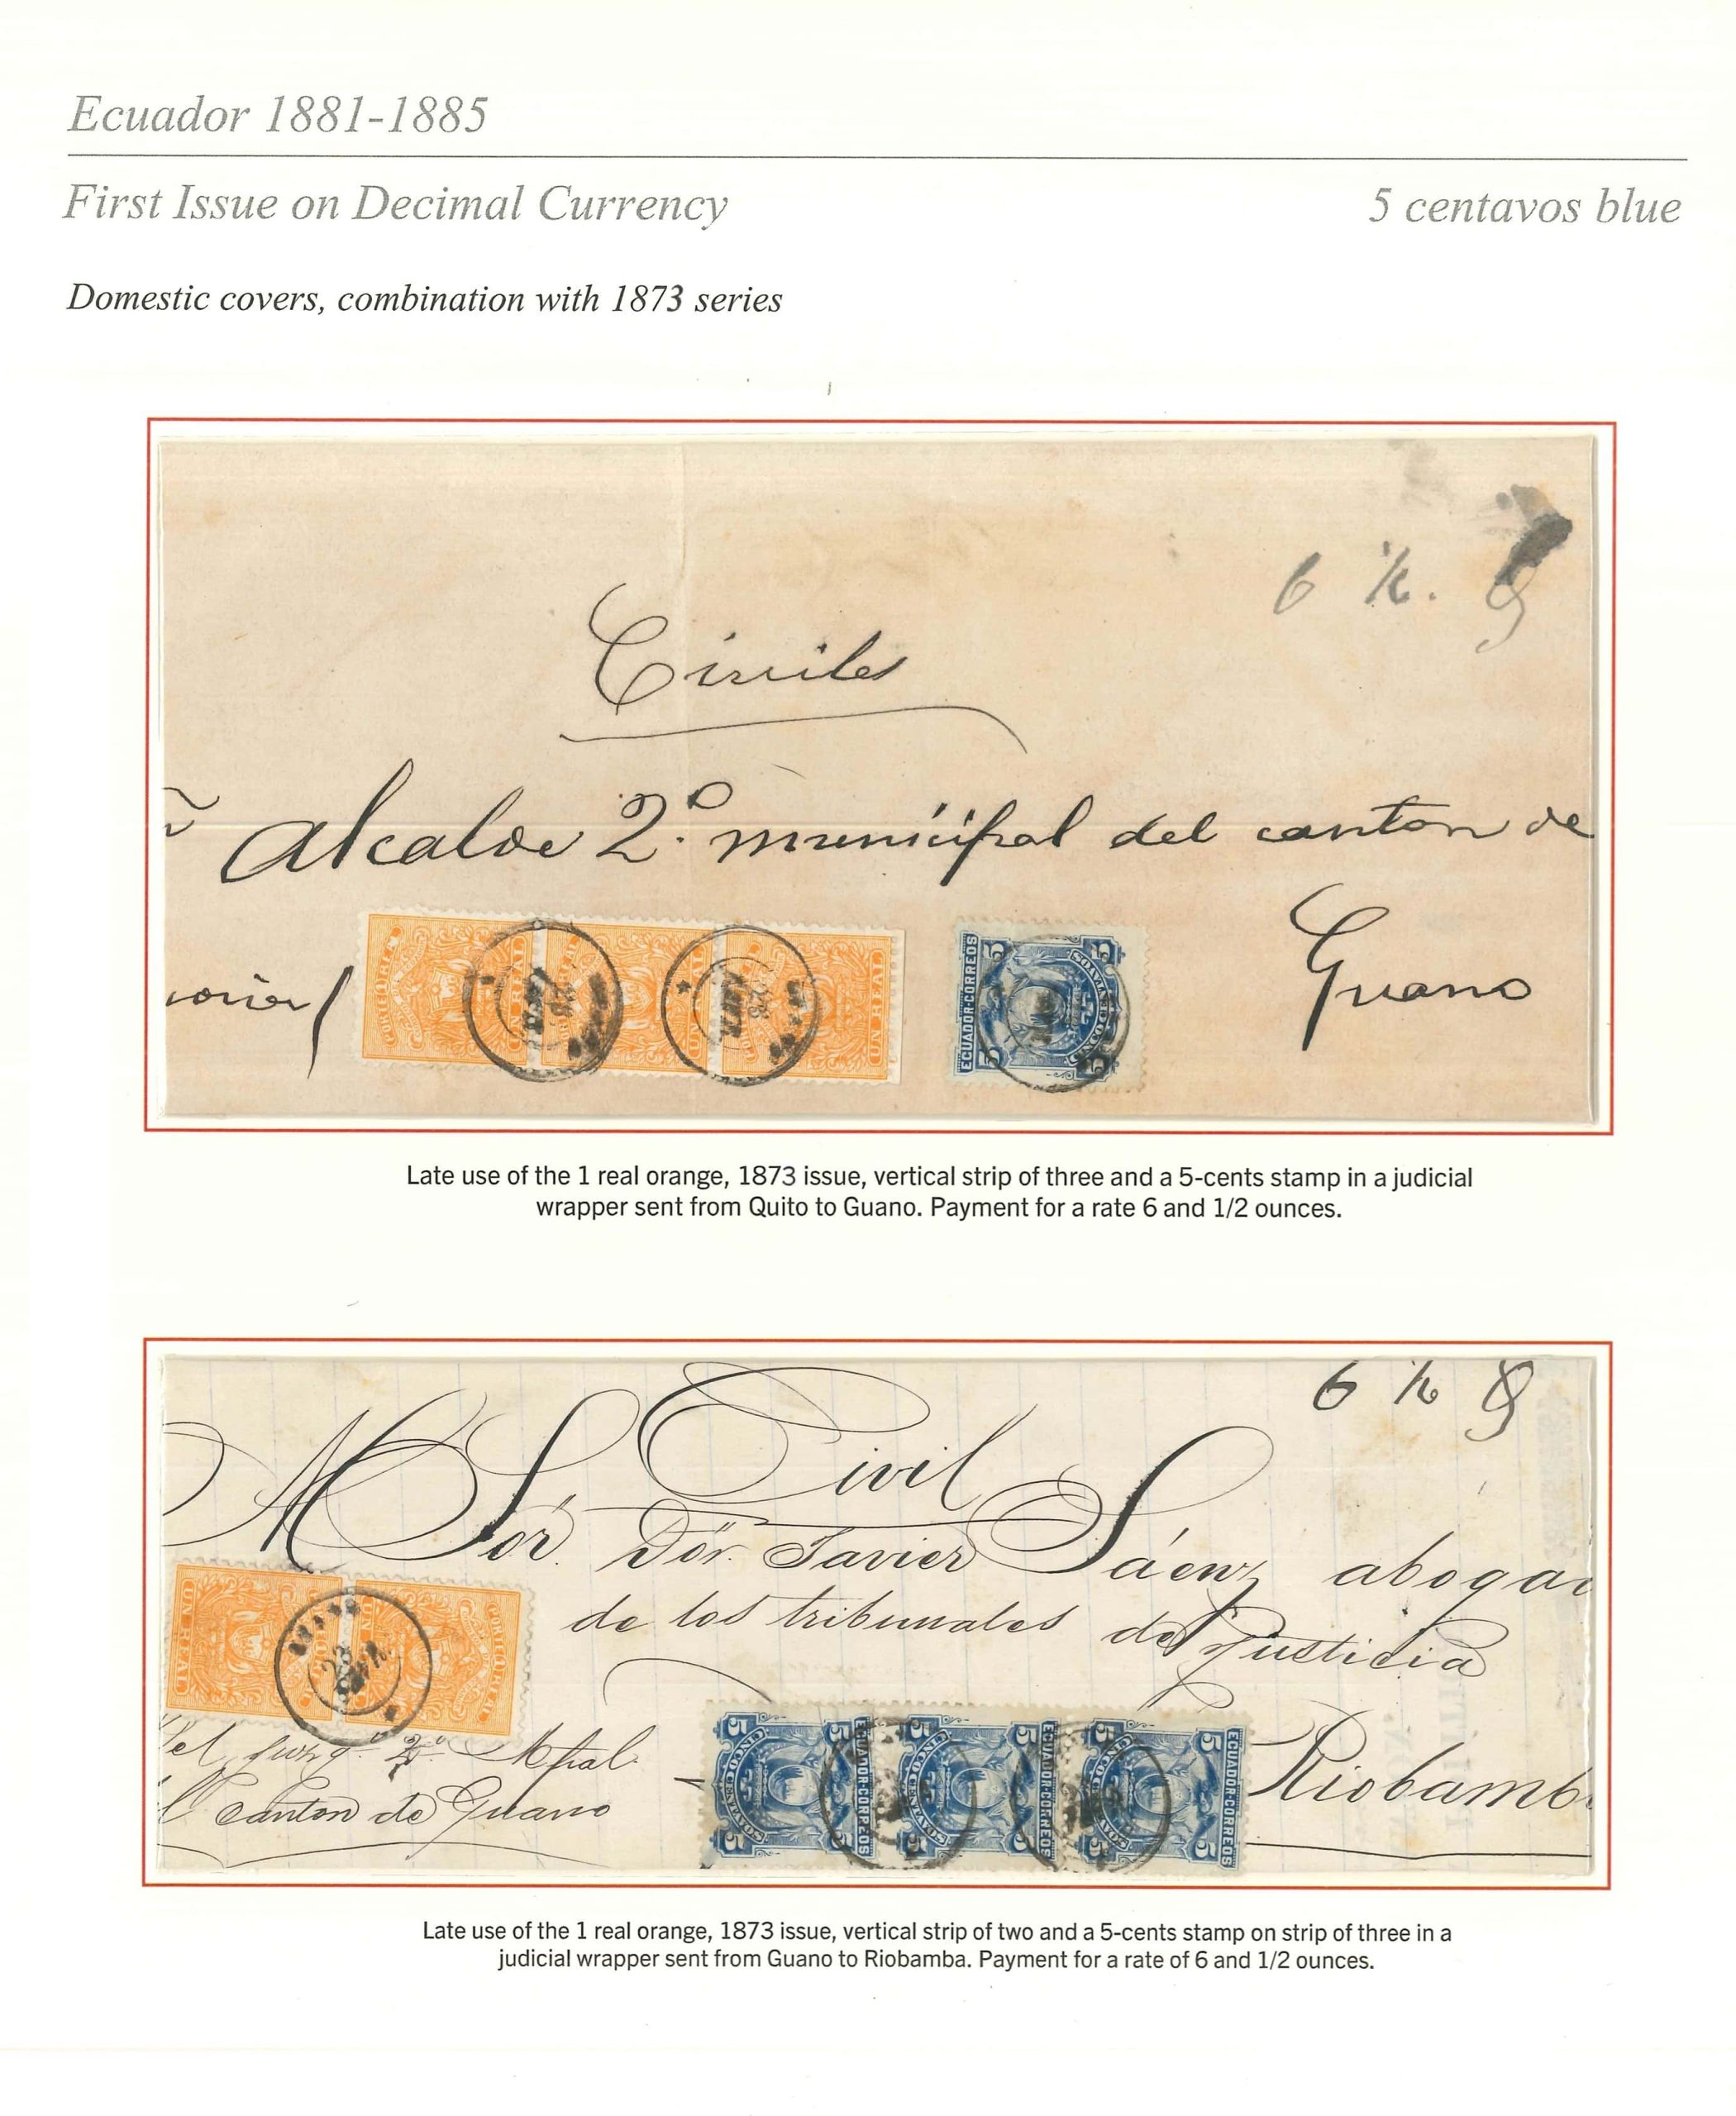 Ecuador 1881-1885
First Issue on Decimal Currency
5 centavos blue
Domestic covers, combination with 1873 series
6 ½.
Civiles
Alcalde 2º. municipal del canton de
Guano
UN REAL
UN REAL
UN REAL
ECUADOR-CORREOS
5 5 5 5
Late use of the 1 real orange, 1873 issue, vertical strip of three and a 5-cents stamp in a judicial
wrapper sent from Quito to Guano. Payment for a rate 6 and 1/2 ounces.
6 ½
Civil
Sor. Dor. Javier Sáenz abogad
de los tribunales de Justicia
UN REAL
UN REAL
23
Canton de Guano
Riobamb
CINCO CENTAVOS
ECUADOR-CORREOS
CINCO CENTAVOS
ECUADOR-CORREOS
CINCO CENTAVOS
ECUADOR-CORREOS
Late use of the 1 real orange, 1873 issue, vertical strip of two and a 5-cents stamp on strip of three in a
judicial wrapper sent from Guano to Riobamba. Payment for a rate of 6 and 1/2 ounces.